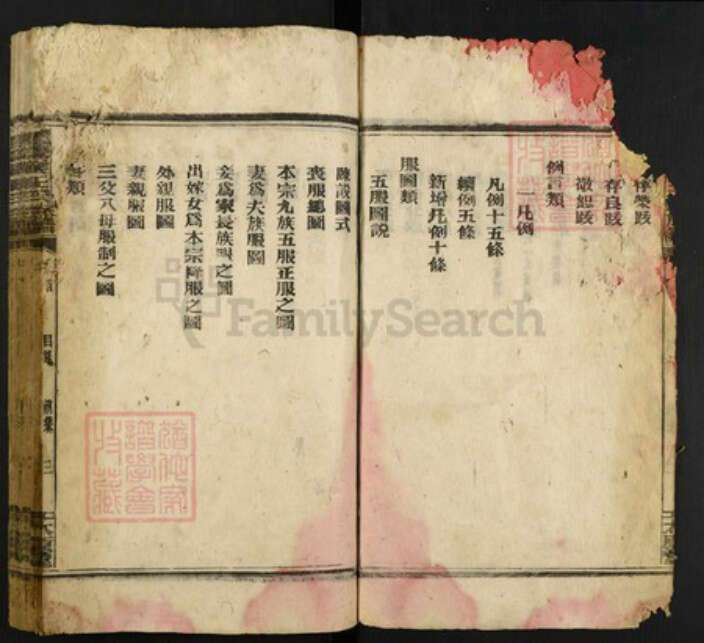 存榮跋
存良跋
敬妲跋
例言類
一凡例
凡例十五條
續例五條
新增凡例十條
服圖類
五服圖說
陳設圖式
喪服總圖
本宗九族五服正服之圖
妻爲夫族服圖
妾爲家長族服之圖
出嫁女爲本宗降服之圖
外親服圖
妻親服圖
三父八母服制之圖
目錄 首集 三
猶他家譜學會特藏
FamilySearch